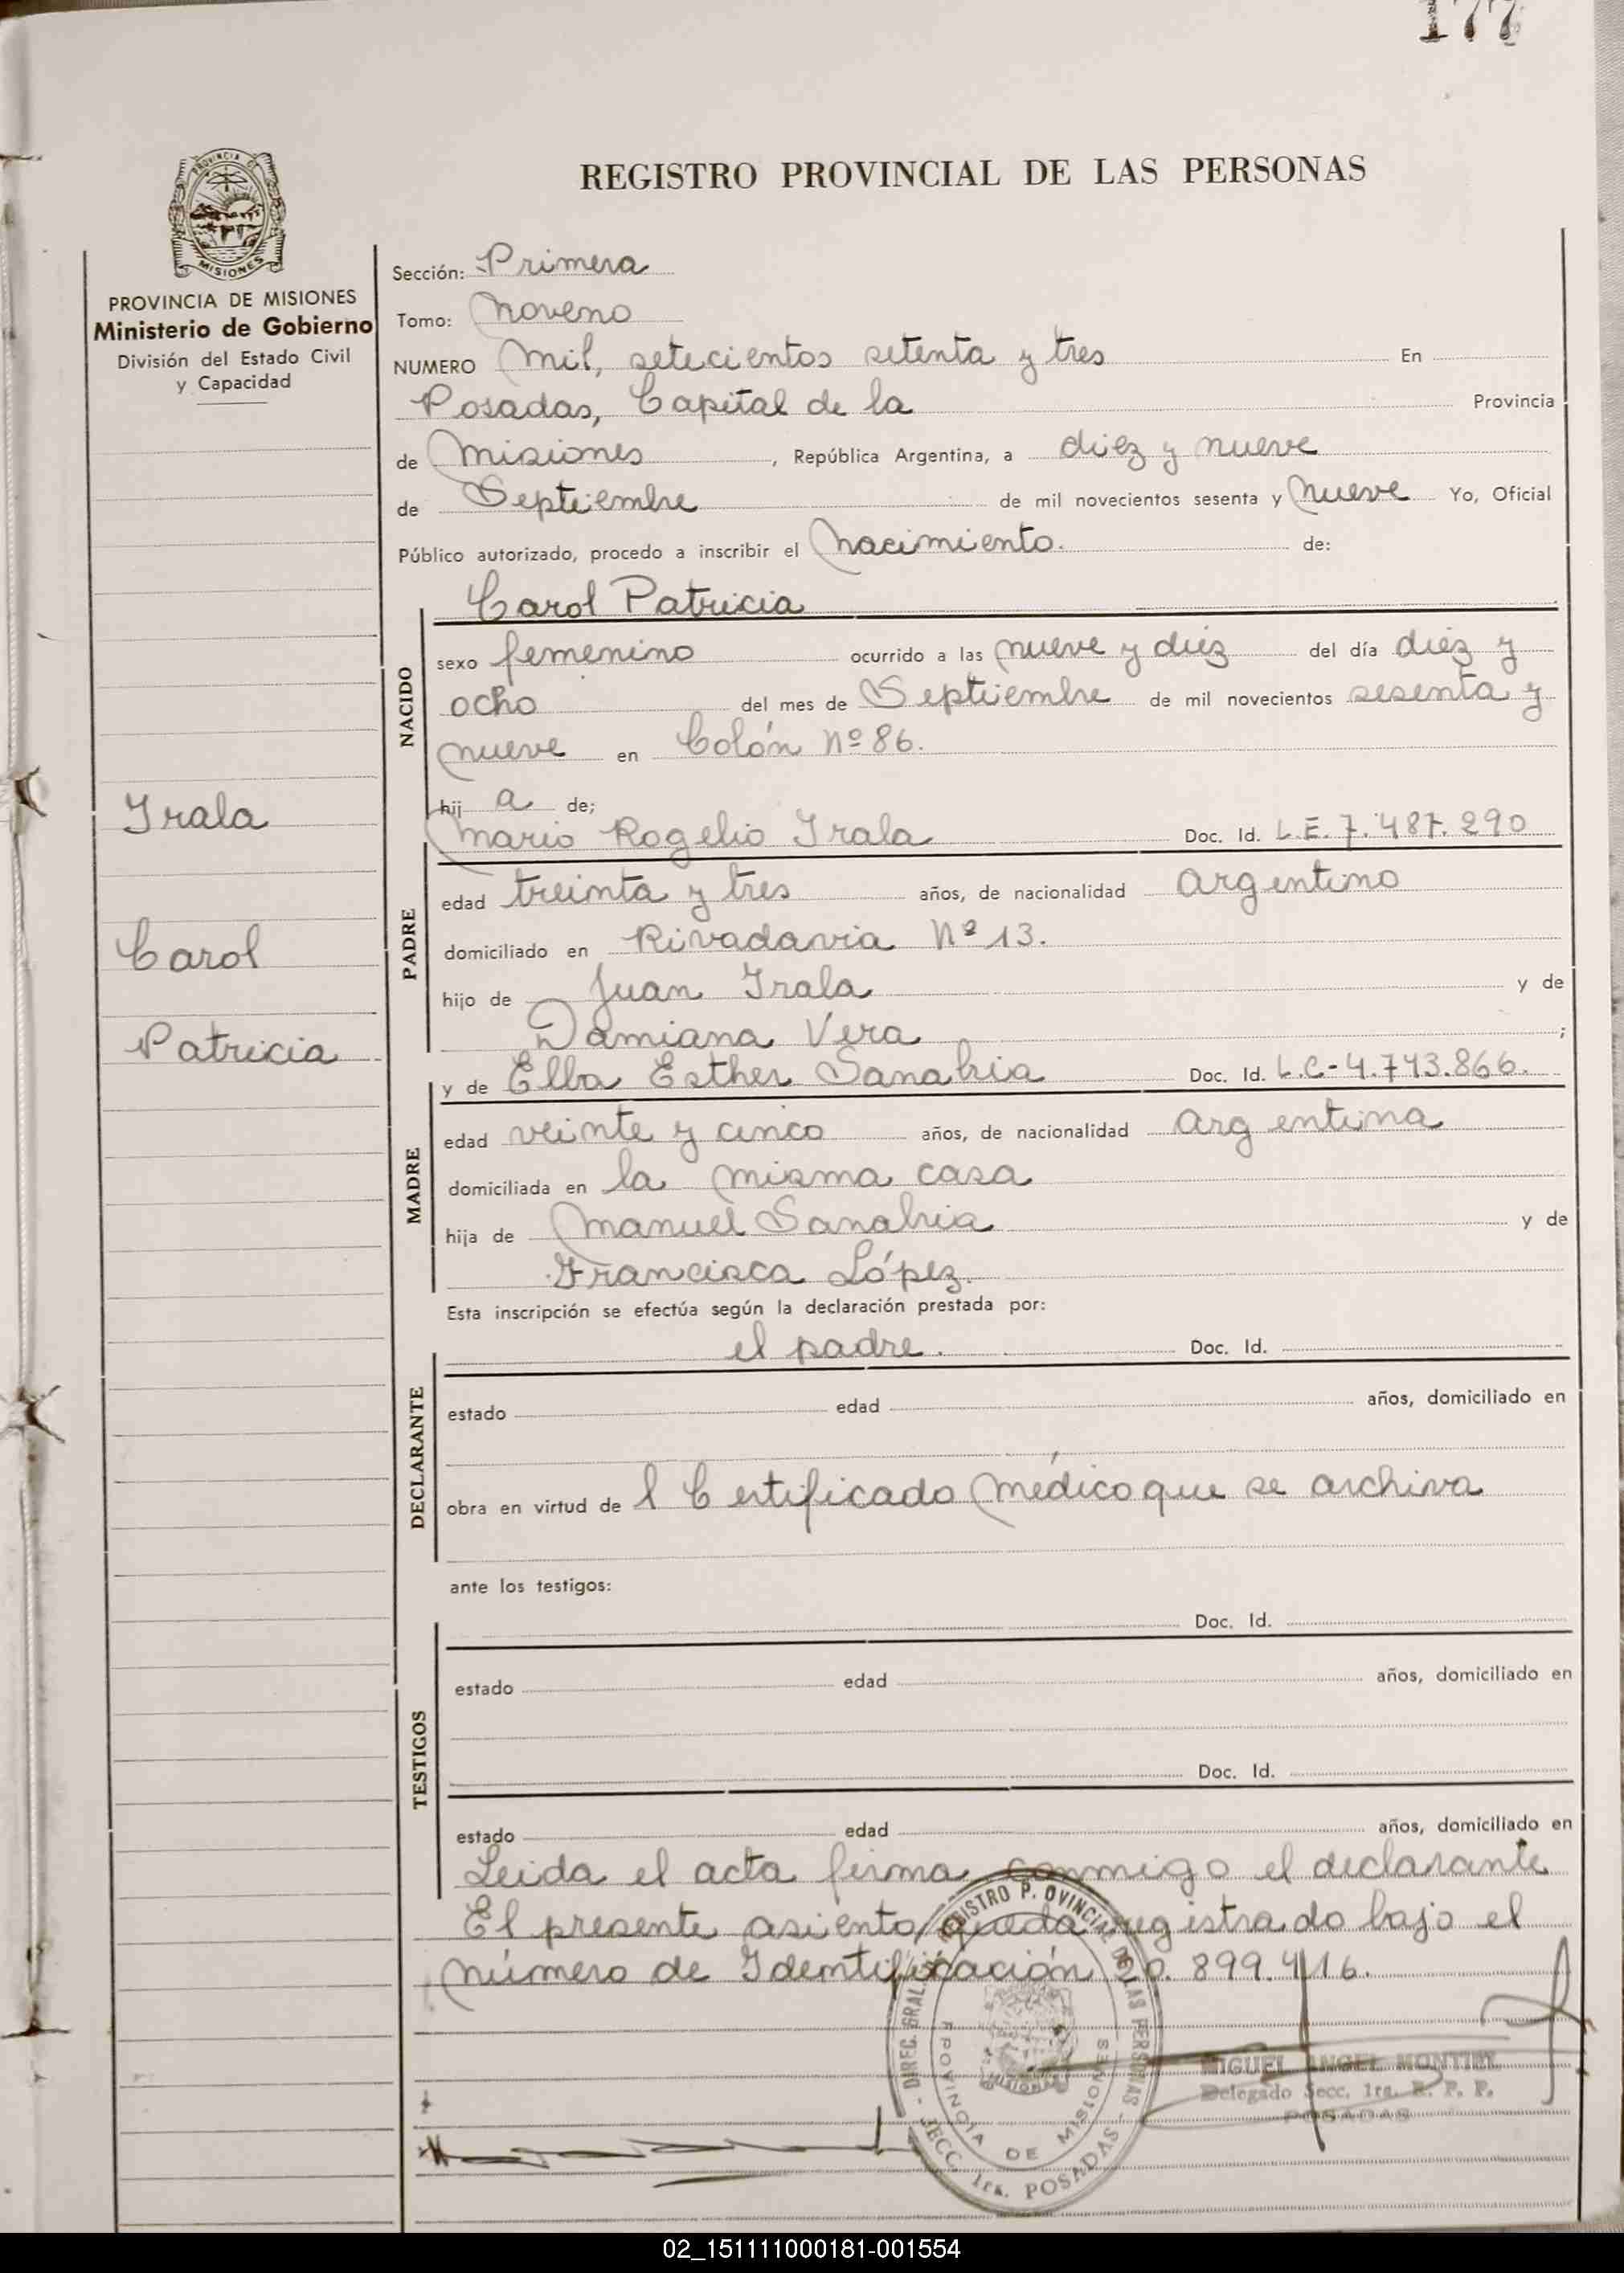 177
REGISTRO PROVINCIAL DE LAS PERSONAS
PROVINCIA DE
MISIONES
PROVINCIA DE MISIONES
Ministerio de Gobierno
División del Estado Civil
y Capacidad
Irala
Carol
Patricia
Sección: Primera
Tomo: Noveno
NUMERO Mil, setecientos setenta y tres En
Posadas, Capital de la Provincia
de Misiones, República Argentina, a diez y nueve
de Septiembre de mil novecientos sesenta y nueve Yo, Oficial
Público autorizado, procedo a inscribir el Nacimiento. de:
Carol Patricia
NACIDO
sexo femenino ocurrido a las nueve y diez del día diez y
ocho del mes de Septiembre de mil novecientos sesenta y
nueve en Colón Nº 86.
hij a de;
Mario Rogelio Irala Doc. Id. L.E. 7.487.290
PADRE
edad treinta y tres años, de nacionalidad argentino
domiciliado en Rivadavia Nº 13.
hijo de Juan Irala y de
Damiana Vera ;
y de Elba Esther Sanabria Doc. Id. L.C-4.743.866.
MADRE
edad veinte y cinco años, de nacionalidad argentina
domiciliada en la misma casa
hija de Manuel Sanabria y de
Francisca López.
Esta inscripción se efectúa según la declaración prestada por:
el padre. Doc. Id.
DECLARANTE
estado edad años, domiciliado en
obra en virtud de l Certificado Médico que se archiva
ante los testigos:
Doc. Id.
TESTIGOS
estado edad años, domiciliado en
Doc. Id.
estado edad años, domiciliado en
Leida el acta firma conmigo el declarante
El presente asiento queda registrado bajo el
número de Identificación 20.899.416.
DIREC. GRAL. REGISTRO P. OVINCIAL DE LAS PERSONAS - SECC. 1ra. POSADAS -
PROVINCIA DE MISIONES
MIGUEL ANGEL
Delegado Secc. 1ra. R. P. P.
POSADAS
02_151111000181-001554